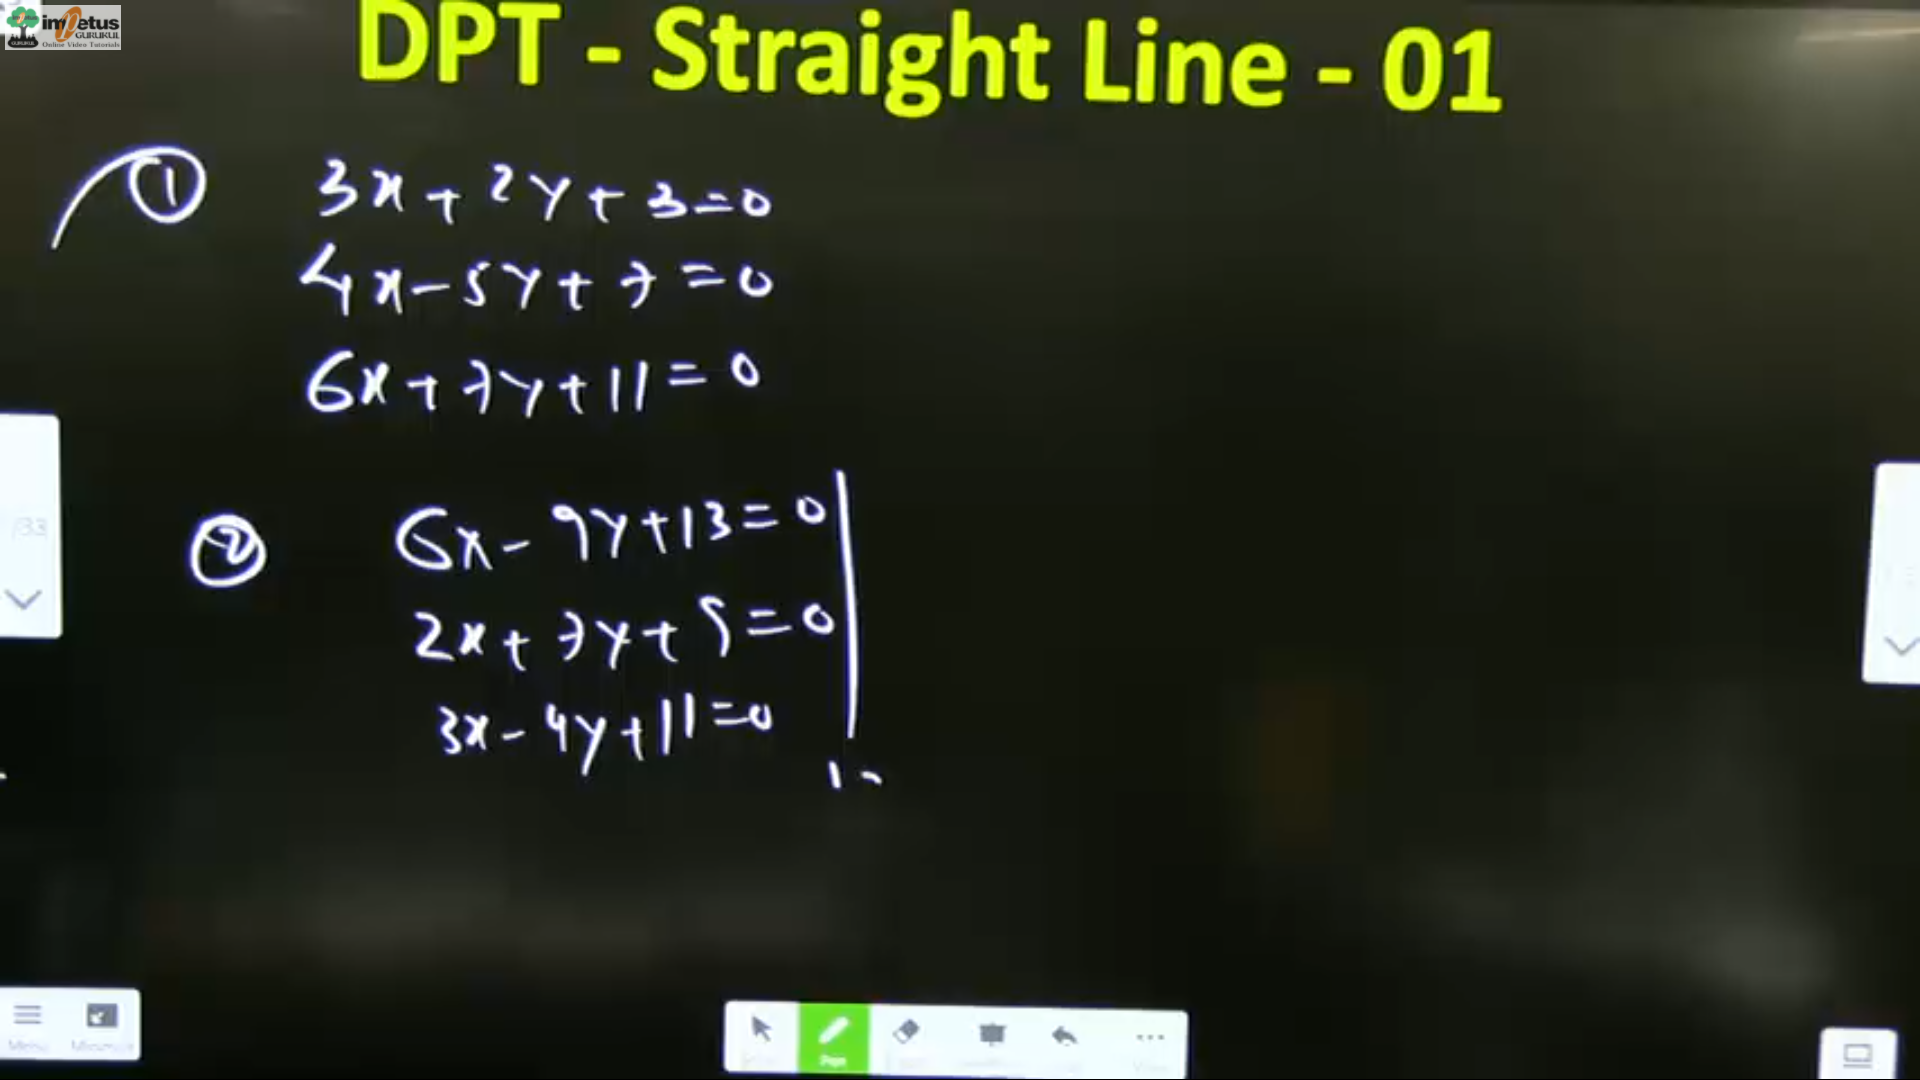 impetus
GURUKUL
Online Video Tutorials
DPT - Straight Line - 01
① 3x + 2y + 3 = 0
4x - 5y + 7 = 0
6x + 7y + 11 = 0
② 6x - 9y + 13 = 0
2x + 7y + 5 = 0
3x - 4y + 11 = 0
/33
Menu
Pen